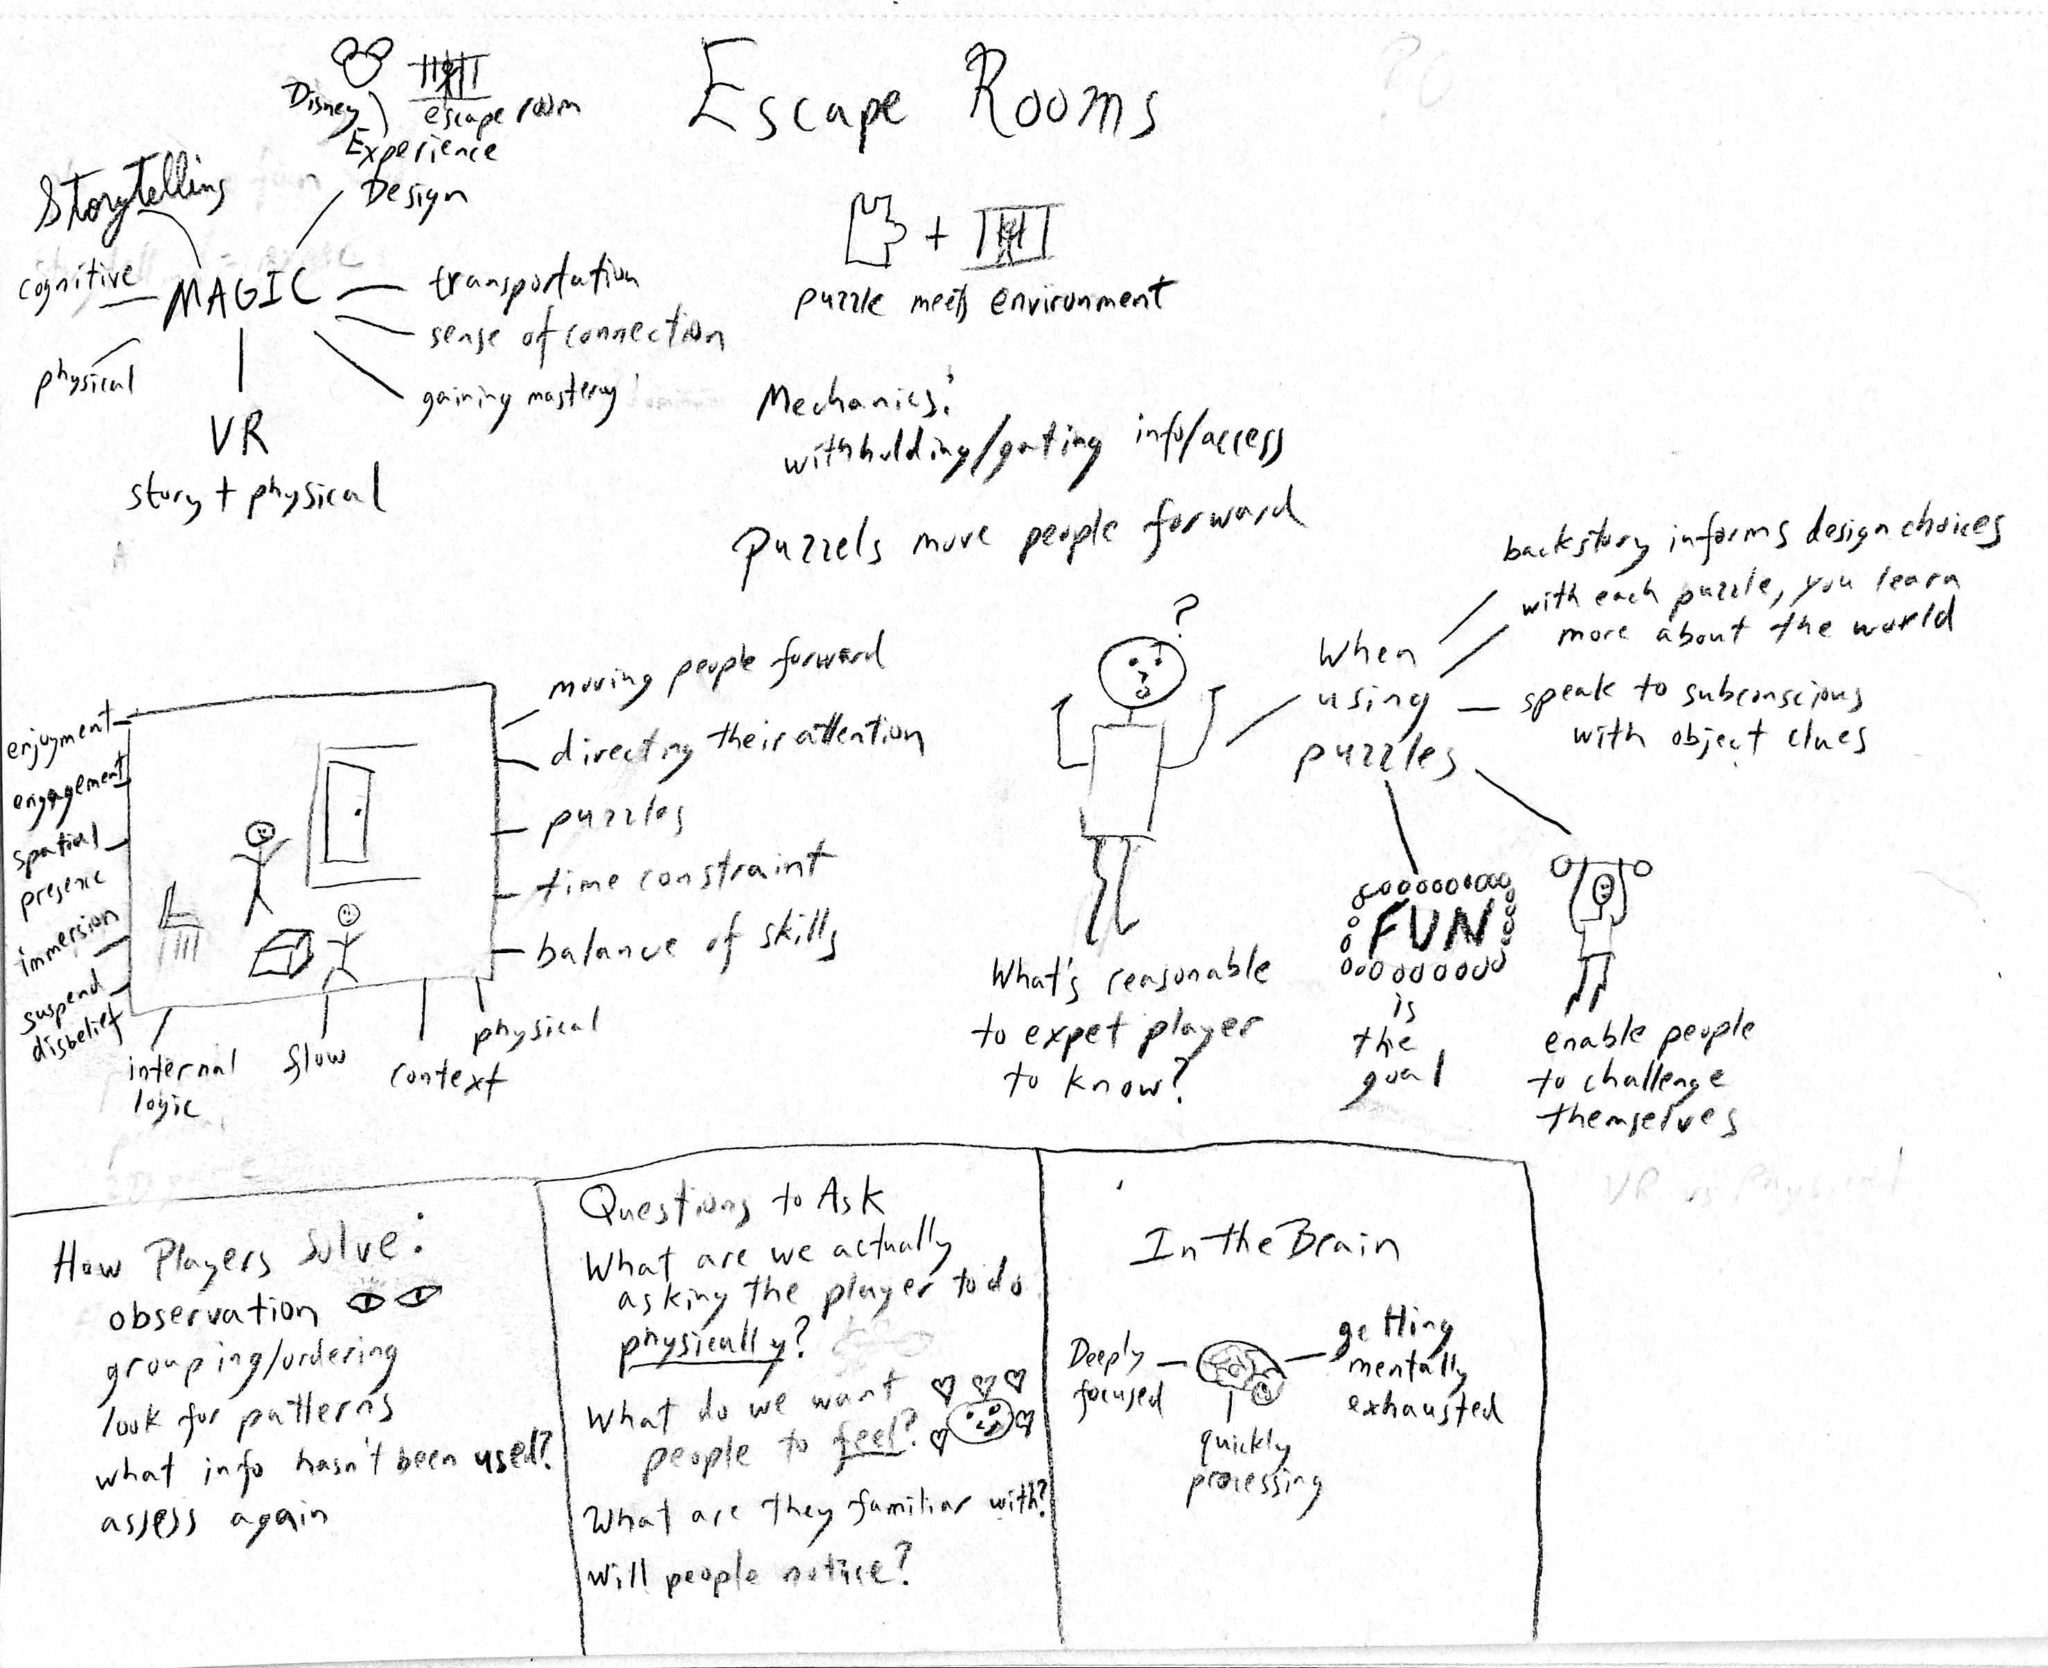 Escape Rooms
Disney
escape room
Experience
Design
Storytelling
cognitive
MAGIC
physical
VR
story + physical
transportation
sense of connection
gaining mastery
+
puzzle meets environment
Mechanics:
withholding/gating info/access
Puzzels move people forward
enjoyment
engagement
spatial
presence
immersion
suspend
disbelief
internal
logic
flow
context
physical
moving people forward
directing their attention
puzzles
time constraint
balance of skills
?
What's reasonable
to expet player
to know?
When
using
puzzles
backstory informs design choices
with each puzzle, you learn
more about the world
speak to subconscious
with object clues
FUN
is
the
goal
enable people
to challenge
themselves
How Players Solve:
observation
grouping/ordering
look for patterns
what info hasn't been used?
assess again
Questions to Ask
What are we actually
asking the player to do
physically?
What do we want
people to feel?
What are they familiar with?
Will people notice?
In the Brain
Deeply
focused
quickly
processing
getting
mentally
exhausted
VR vs Physical